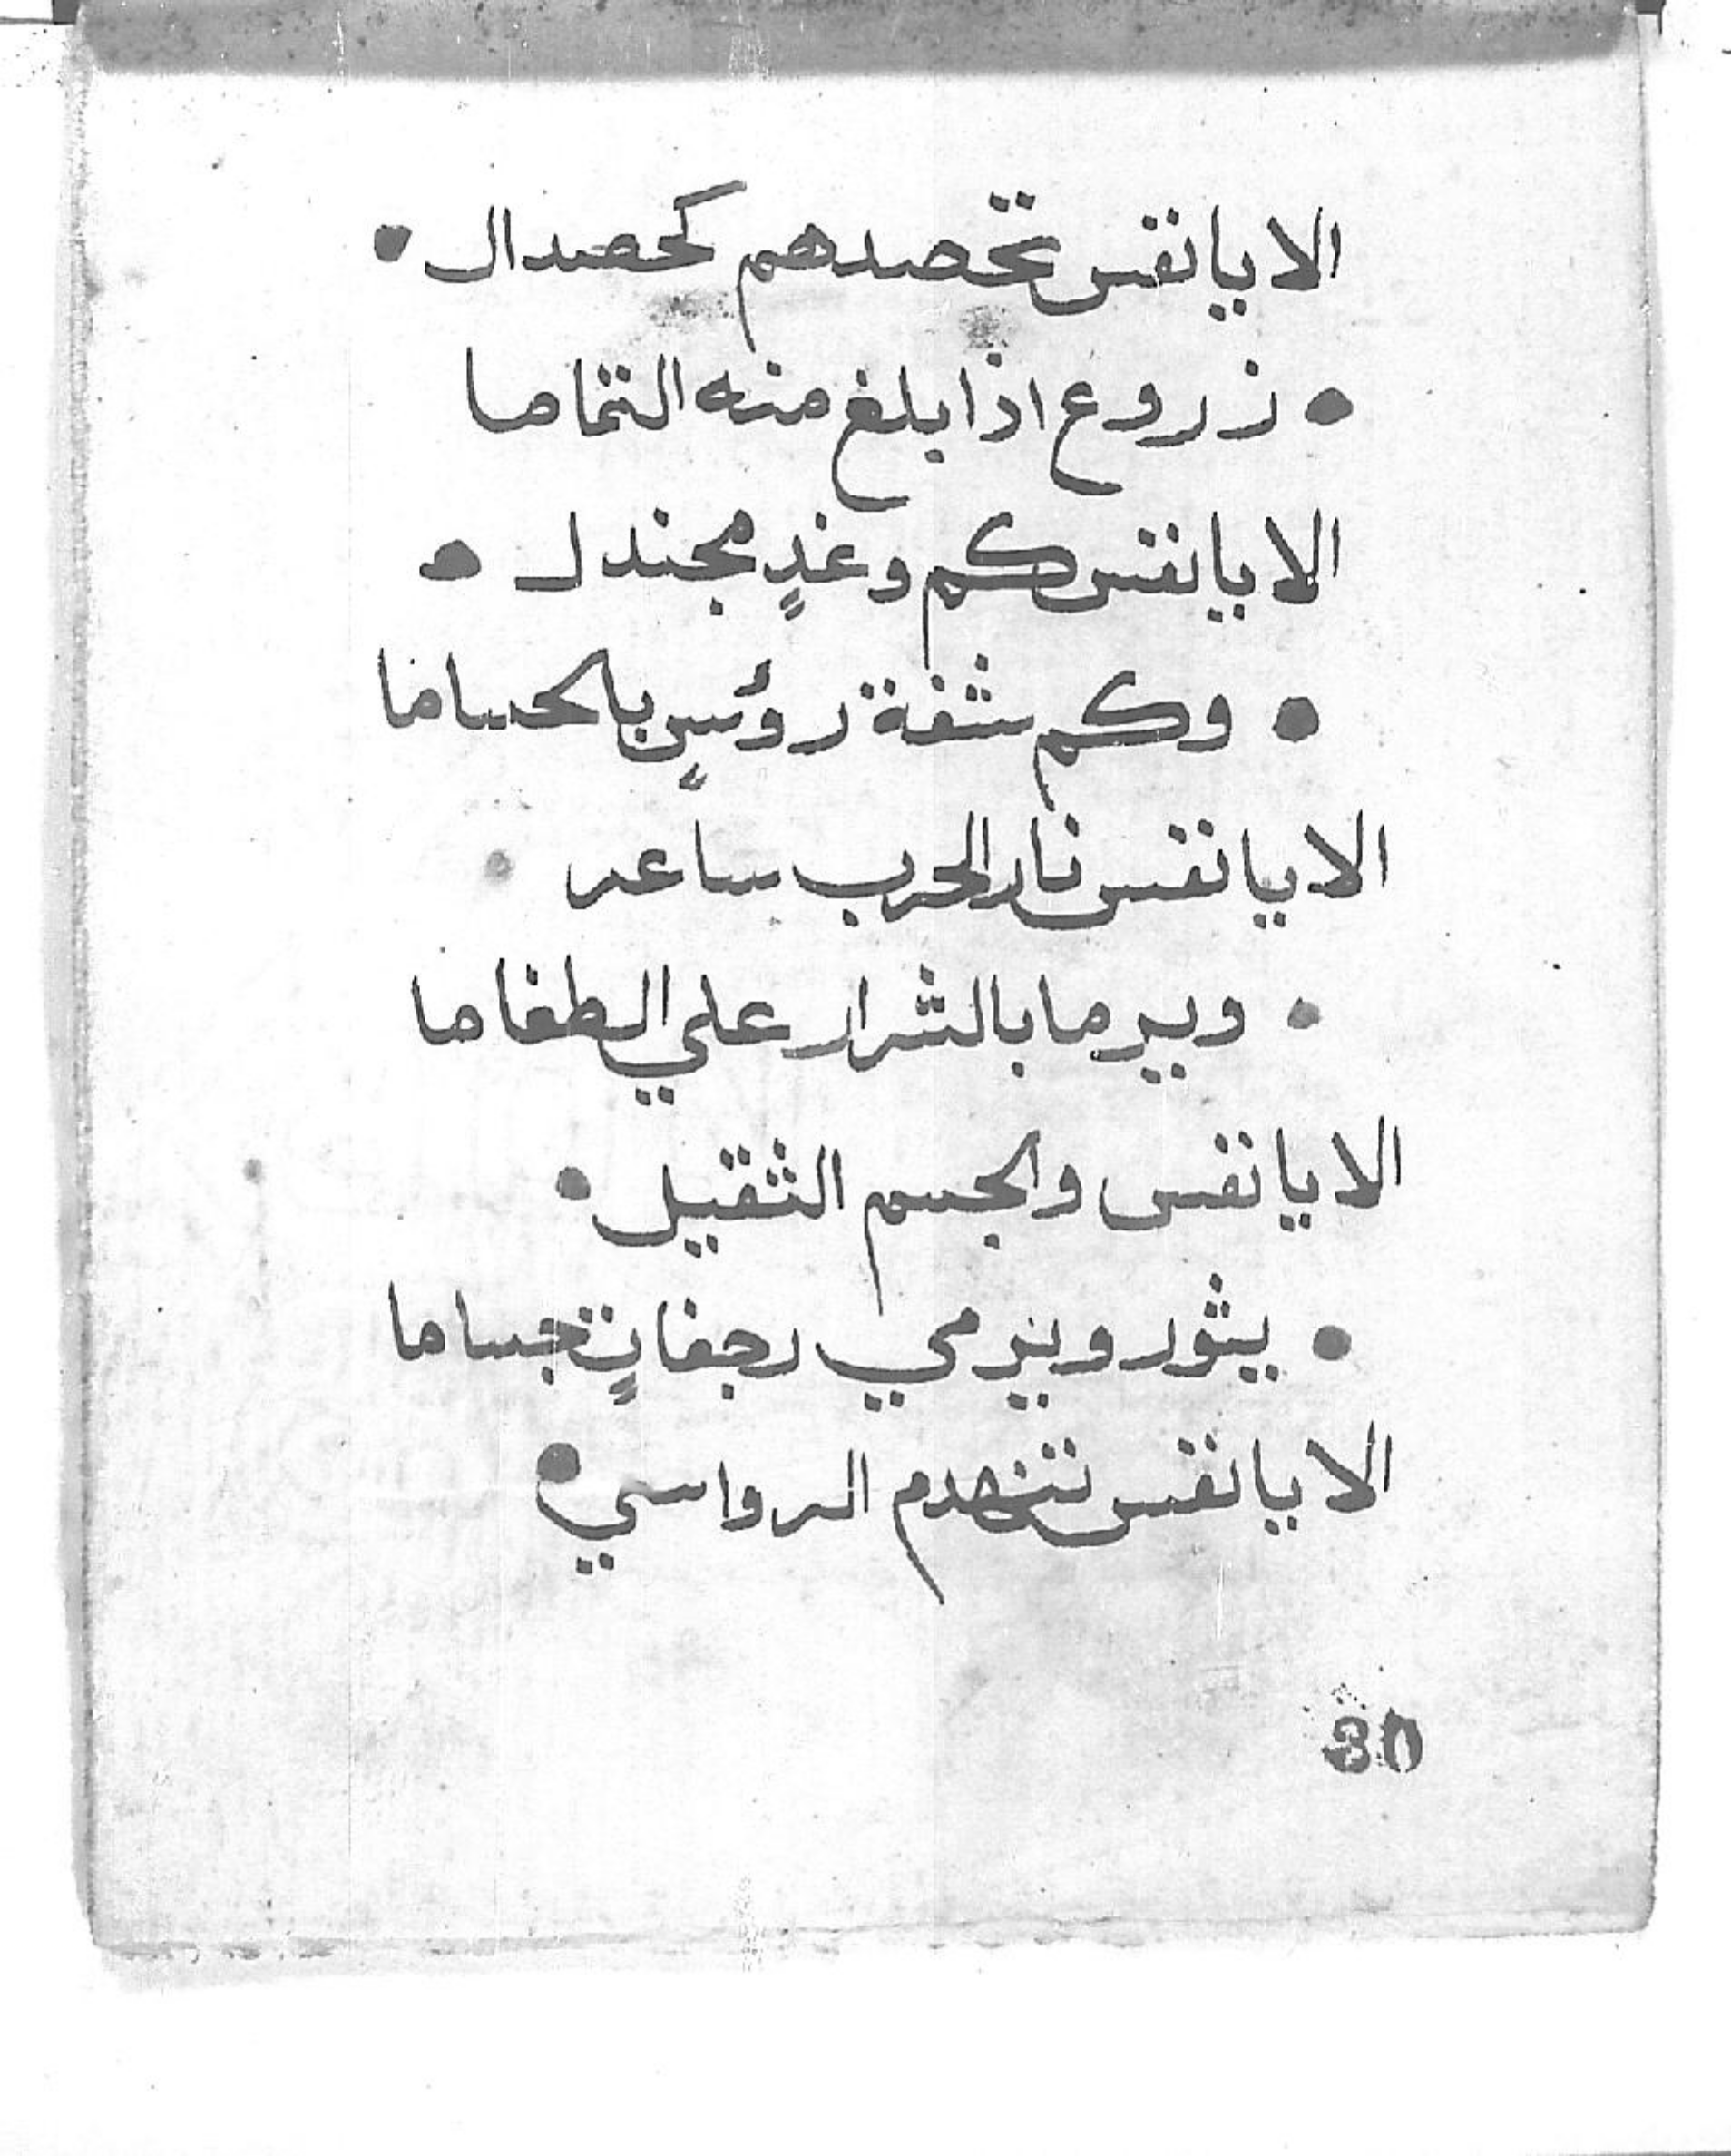 الا يا نفس تحصدهم كحصد ال •
• زروع اذا بلغ منه التماما
الا يا نفس كم وغدٍ مجندل •
• وكم شفة رؤسٍ بالحساما
الا يا نفس نار الحرب ساعر •
• ويرما بالشرار علي الطغاما
الا يا نفس والجسم الثقيل •
• يثور ويرمي رجفاتٍ جساما
الا يا نفس تنهدم الرواسي •
30